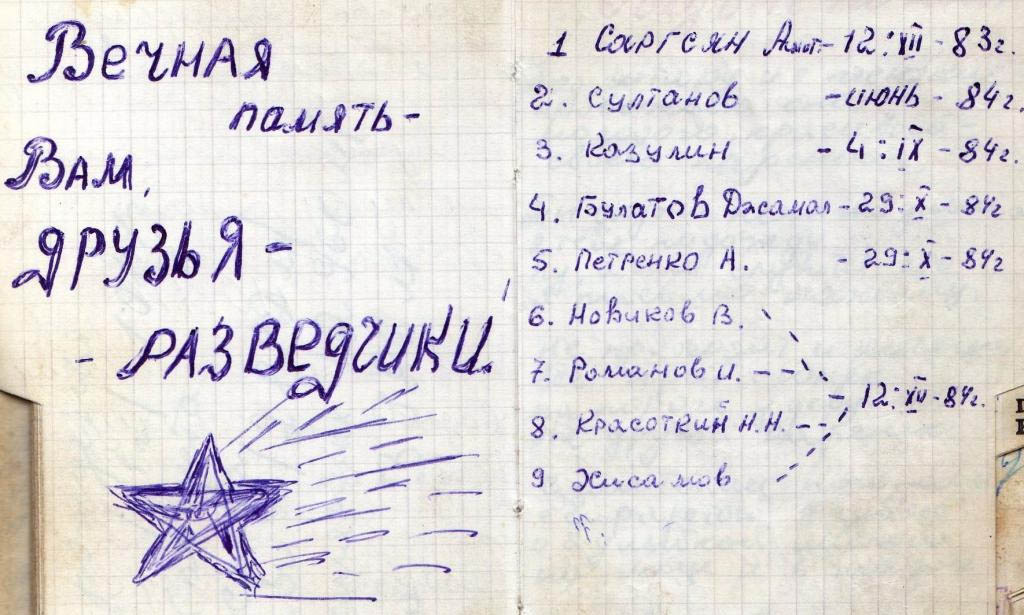 Вечная
память -
Вам,
друзья -
- разведчики!
1 Саргсян - 12:XII - 83г.
2. Султанов - июнь - 84г.
3. Казулин - 4:IX - 84г.
4. Булатов Джамал - 29:X - 84г
5. Петренко А. - 29:X - 84г
6. Новиков В.
7. Романов И. - - -
8. Красоткин Н.Н. - - - 12:XII - 84г.
9 Хисамов